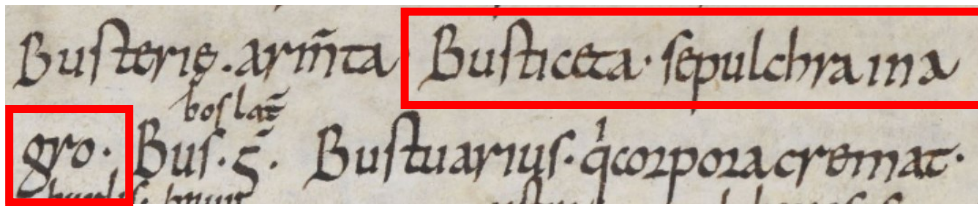 Busterię. arm̄ta Busticeta· sepulchra in a
bos lat̄
gro· Bus· ḡ. Bustuarius· q̇ corpora cremat·